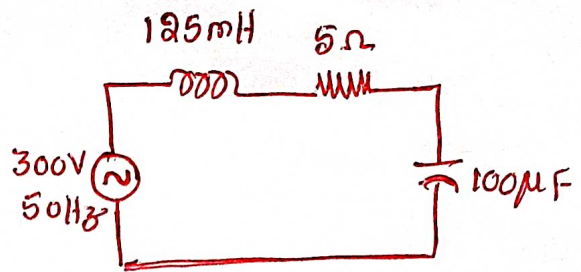 125mH
5Ω
300V
50Hz
100μF